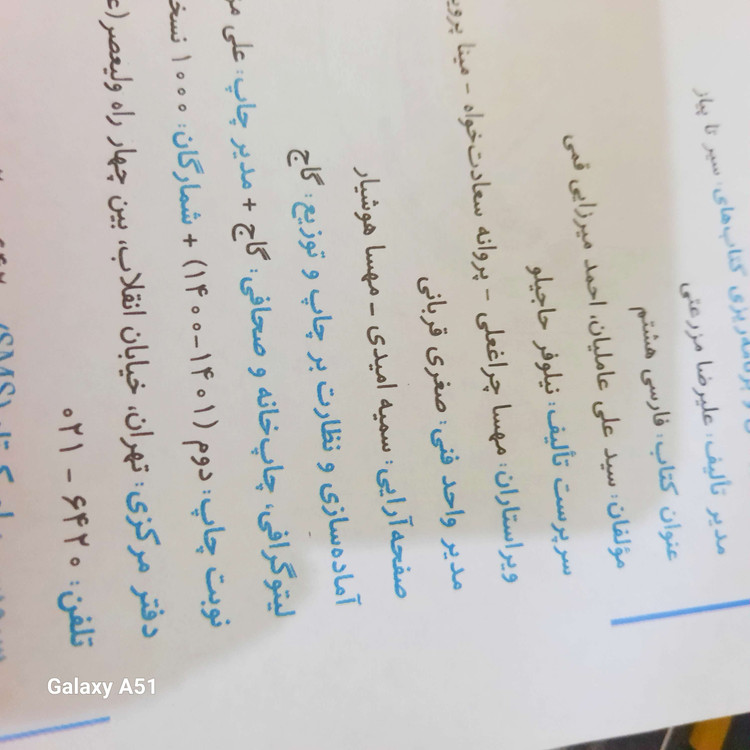 برنامه‌ریزی کتاب‌های: سیر تا پیاز
مدیر تألیف: علیرضا مزرعتی
عنوان کتاب: فارسی هشتم
مؤلفان: سید علی عاملیان، احمد میرزایی قمی
سرپرست تألیف: نیلوفر حاجیلو
ویراستاران: مهسا چراغعلی - پروانه سعادت‌خواه - مینا
مدیر واحد فنی: صغری قربانی
صفحه‌آرایی: سمیه امیدی - مهسا هوشیار
آماده‌سازی و نظارت بر چاپ و توزیع: گاج
لیتوگرافی، چاپ‌خانه و صحافی: گاج + مدیر چاپ: علی
نوبت چاپ: دوم (۱۴۰۱-۱۴۰۰) + شمارگان: ۱۰۰۰
دفتر مرکزی: تهران، خیابان انقلاب، بین چهار راه ولیعصر
تلفن: ۶۴۲۰ - ۰۲۱
(SMS)
Galaxy A51